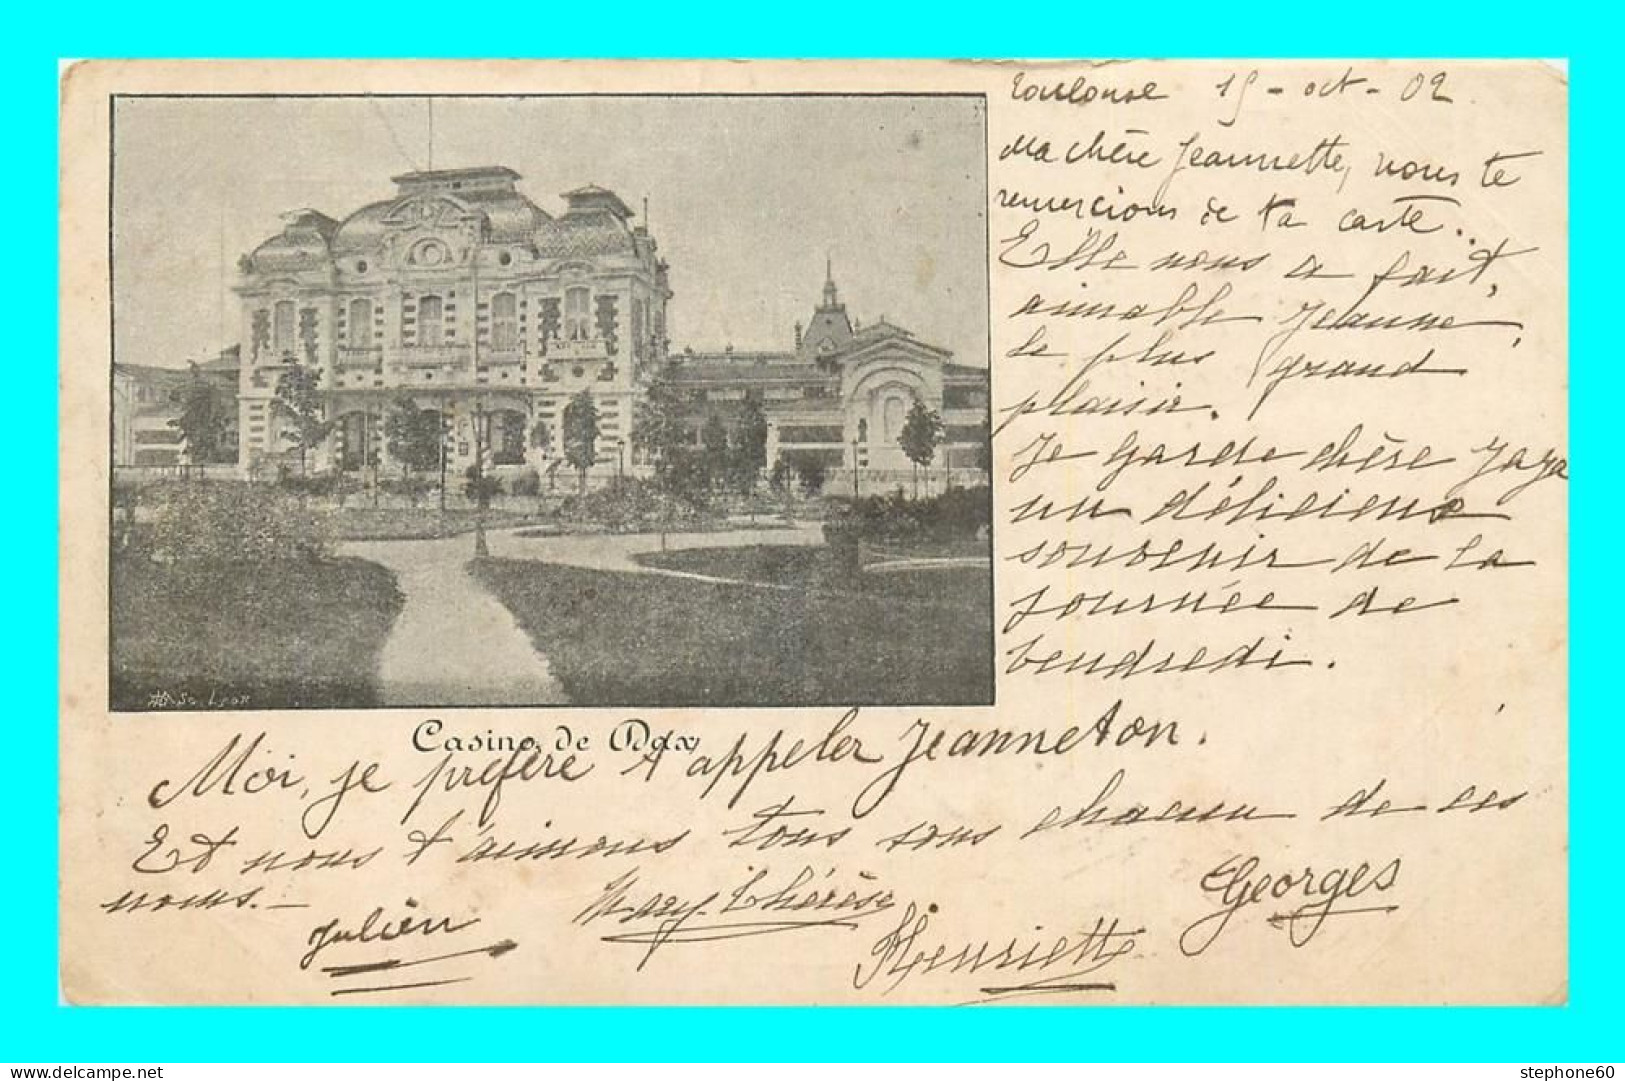 Toulouse 15 - oct - 02
Ma chère Jeannette, nous te
remercions de ta carte.
Elle nous a fait,
aimable Jeanne,
le plus grand
plaisir.
Je garde chère Jaja
un délicieux
souvenir de la
journée de
vendredi.
Casino de Dax
Moi, je préfère t'appeler Jeanneton.
Et nous t'aimons tous sous chacun de ces
noms. -
Georges
Mary-Thérèse
Julien
Henriette
delcampe.net
stephone60